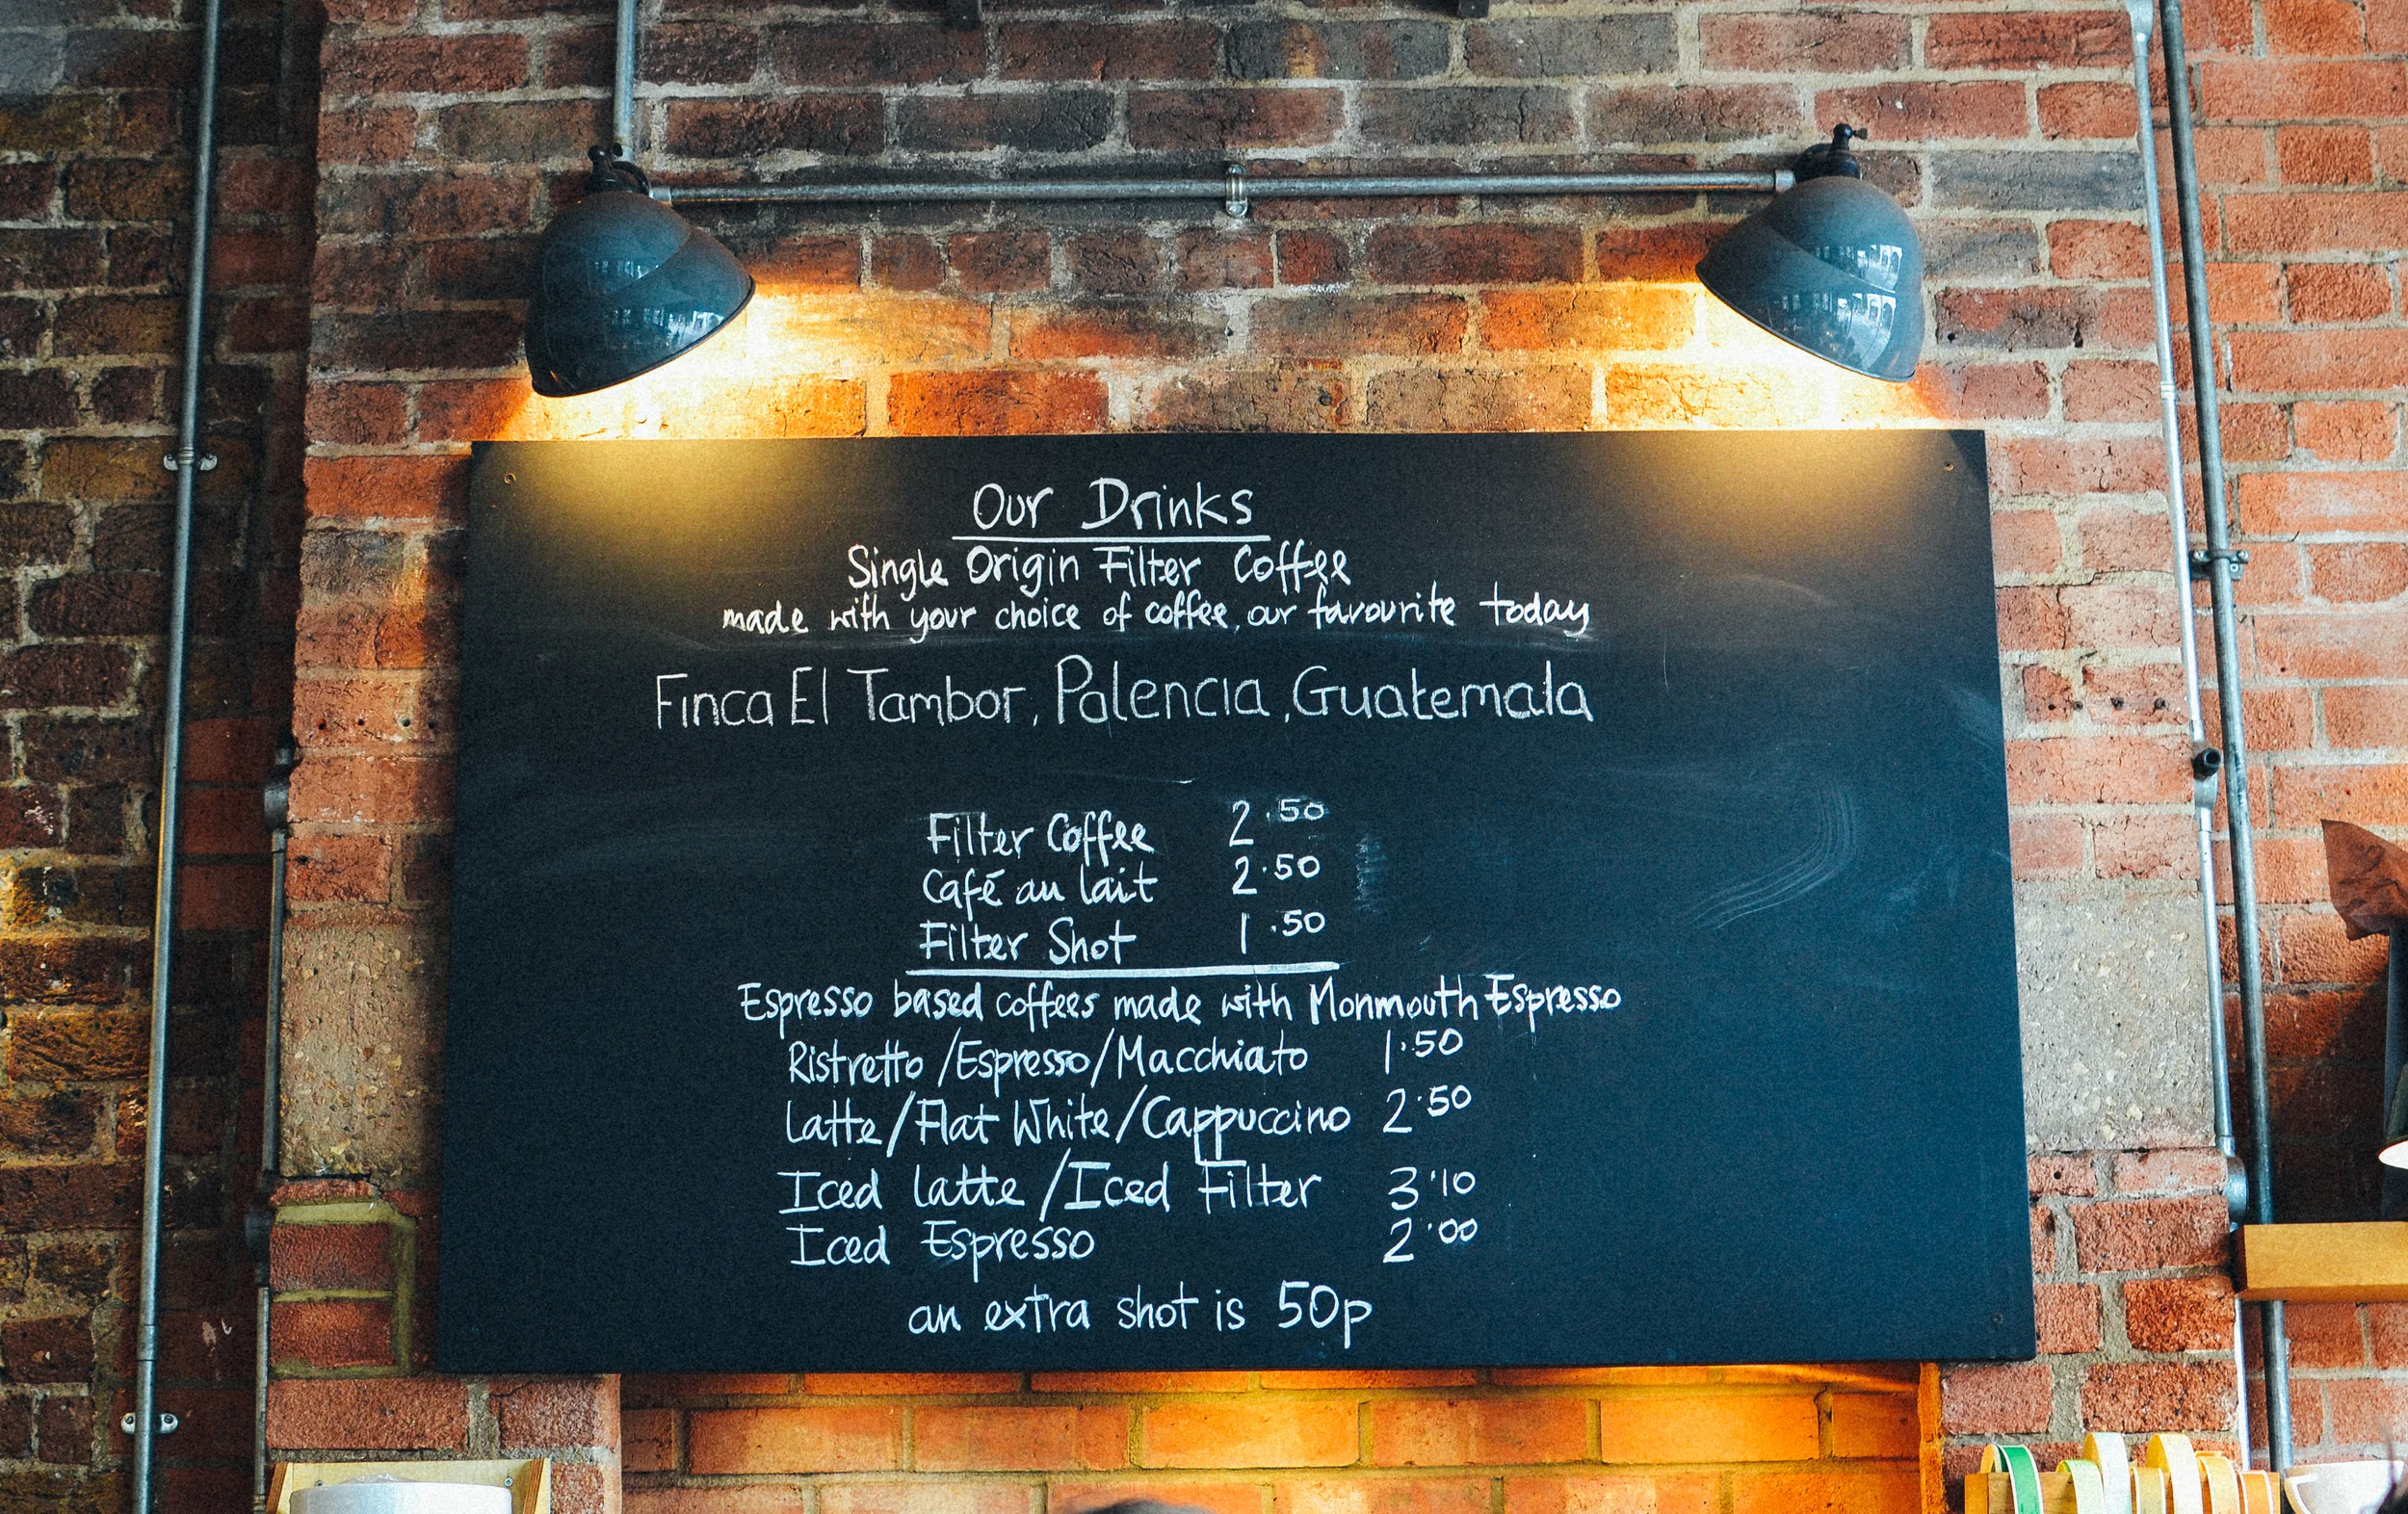 Our Drinks
Single Origin Filter Coffee
made with your choice of coffee, our favourite today
Finca El Tambor, Palencia, Guatemala
Filter Coffee 2.50
Café au lait 2.50
Filter Shot 1.50
Espresso based coffees made with Monmouth Espresso
Ristretto/Espresso/Macchiato 1.50
Latte/Flat White/Cappuccino 2.50
Iced latte/Iced Filter 3.10
Iced Espresso 2.00
an extra shot is 50p